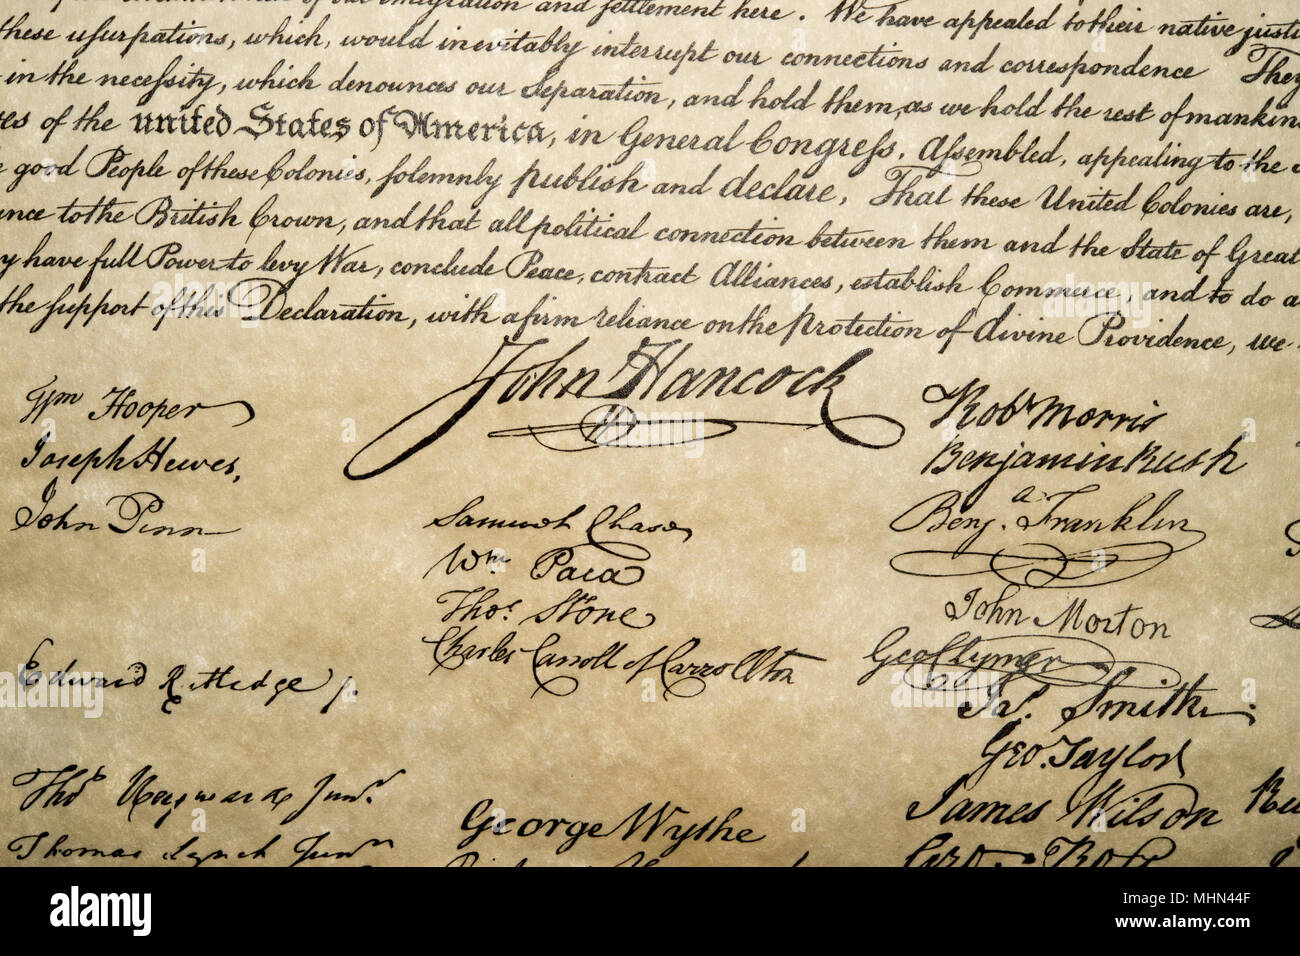 of our emigration and settlement here. We have appealed to their native justi
these usurpations, which, would inevitably interrupt our connections and correspondence They
in the necessity, which denounces our Separation, and hold them, as we hold the rest of mankin
tes of the united States of America, in General Congress, Assembled, appealing to the
good People of these Colonies, solemnly publish and declare, That these United Colonies are,
ance to the British Crown, and that all political connection between them and the State of Great
y have full Power to levy War, conclude Peace, contract Alliances, establish Commerce, and to do a
the support of this Declaration, with a firm reliance on the protection of divine Providence, we
John Hancock
Wm Hooper
Joseph Hewes,
John Penn
Edward Rutledge
Thos Heyward Junr.
Thomas Lynch Junr
Samuel Chase
Wm. Paca
Thos. Stone
Charles Carroll of Carrollton
George Wythe
Robt Morris
Benjamin Rush
Benja. Franklin
John Morton
Geo Clymer
Jas. Smith
Geo. Taylor
James Wilson
Geo. Ross
alamy
Image ID: MHN44F
www.alamy.com